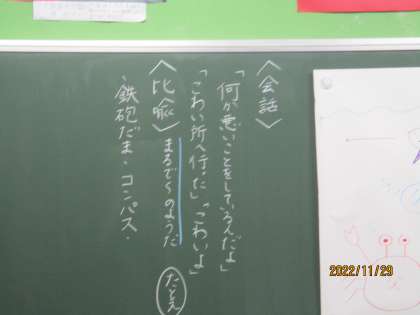 〈会話〉
「何か悪いことをしているんだよ」
「こわい所へ行った」「こわいよ」
〈比喩〉まるで〜のようだ
たとえ
・鉄砲だま・コンパス・
2022/11/29